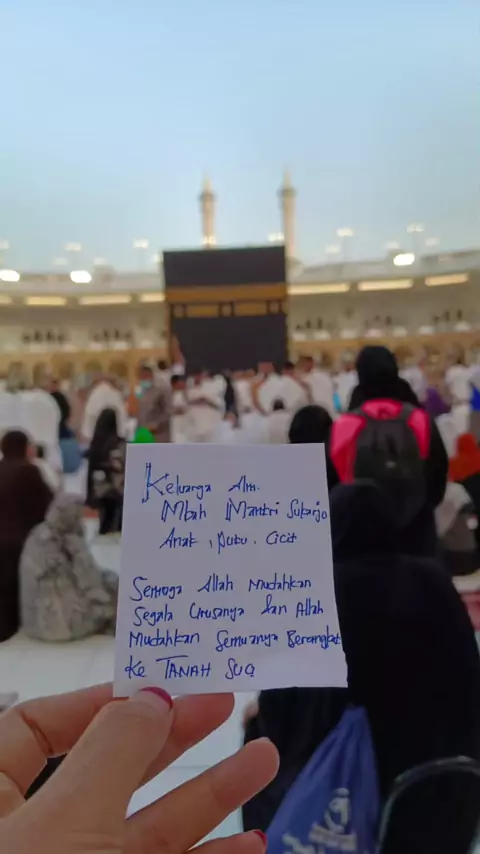 Keluarga Alm.
Mbah Mantri Sukarjo
Anak, putu, Cicit
Semoga Allah Mudahkan
Segala Urusanya dan Allah
Mudahkan Semuanya Berangkat
Ke TANAH SUCI